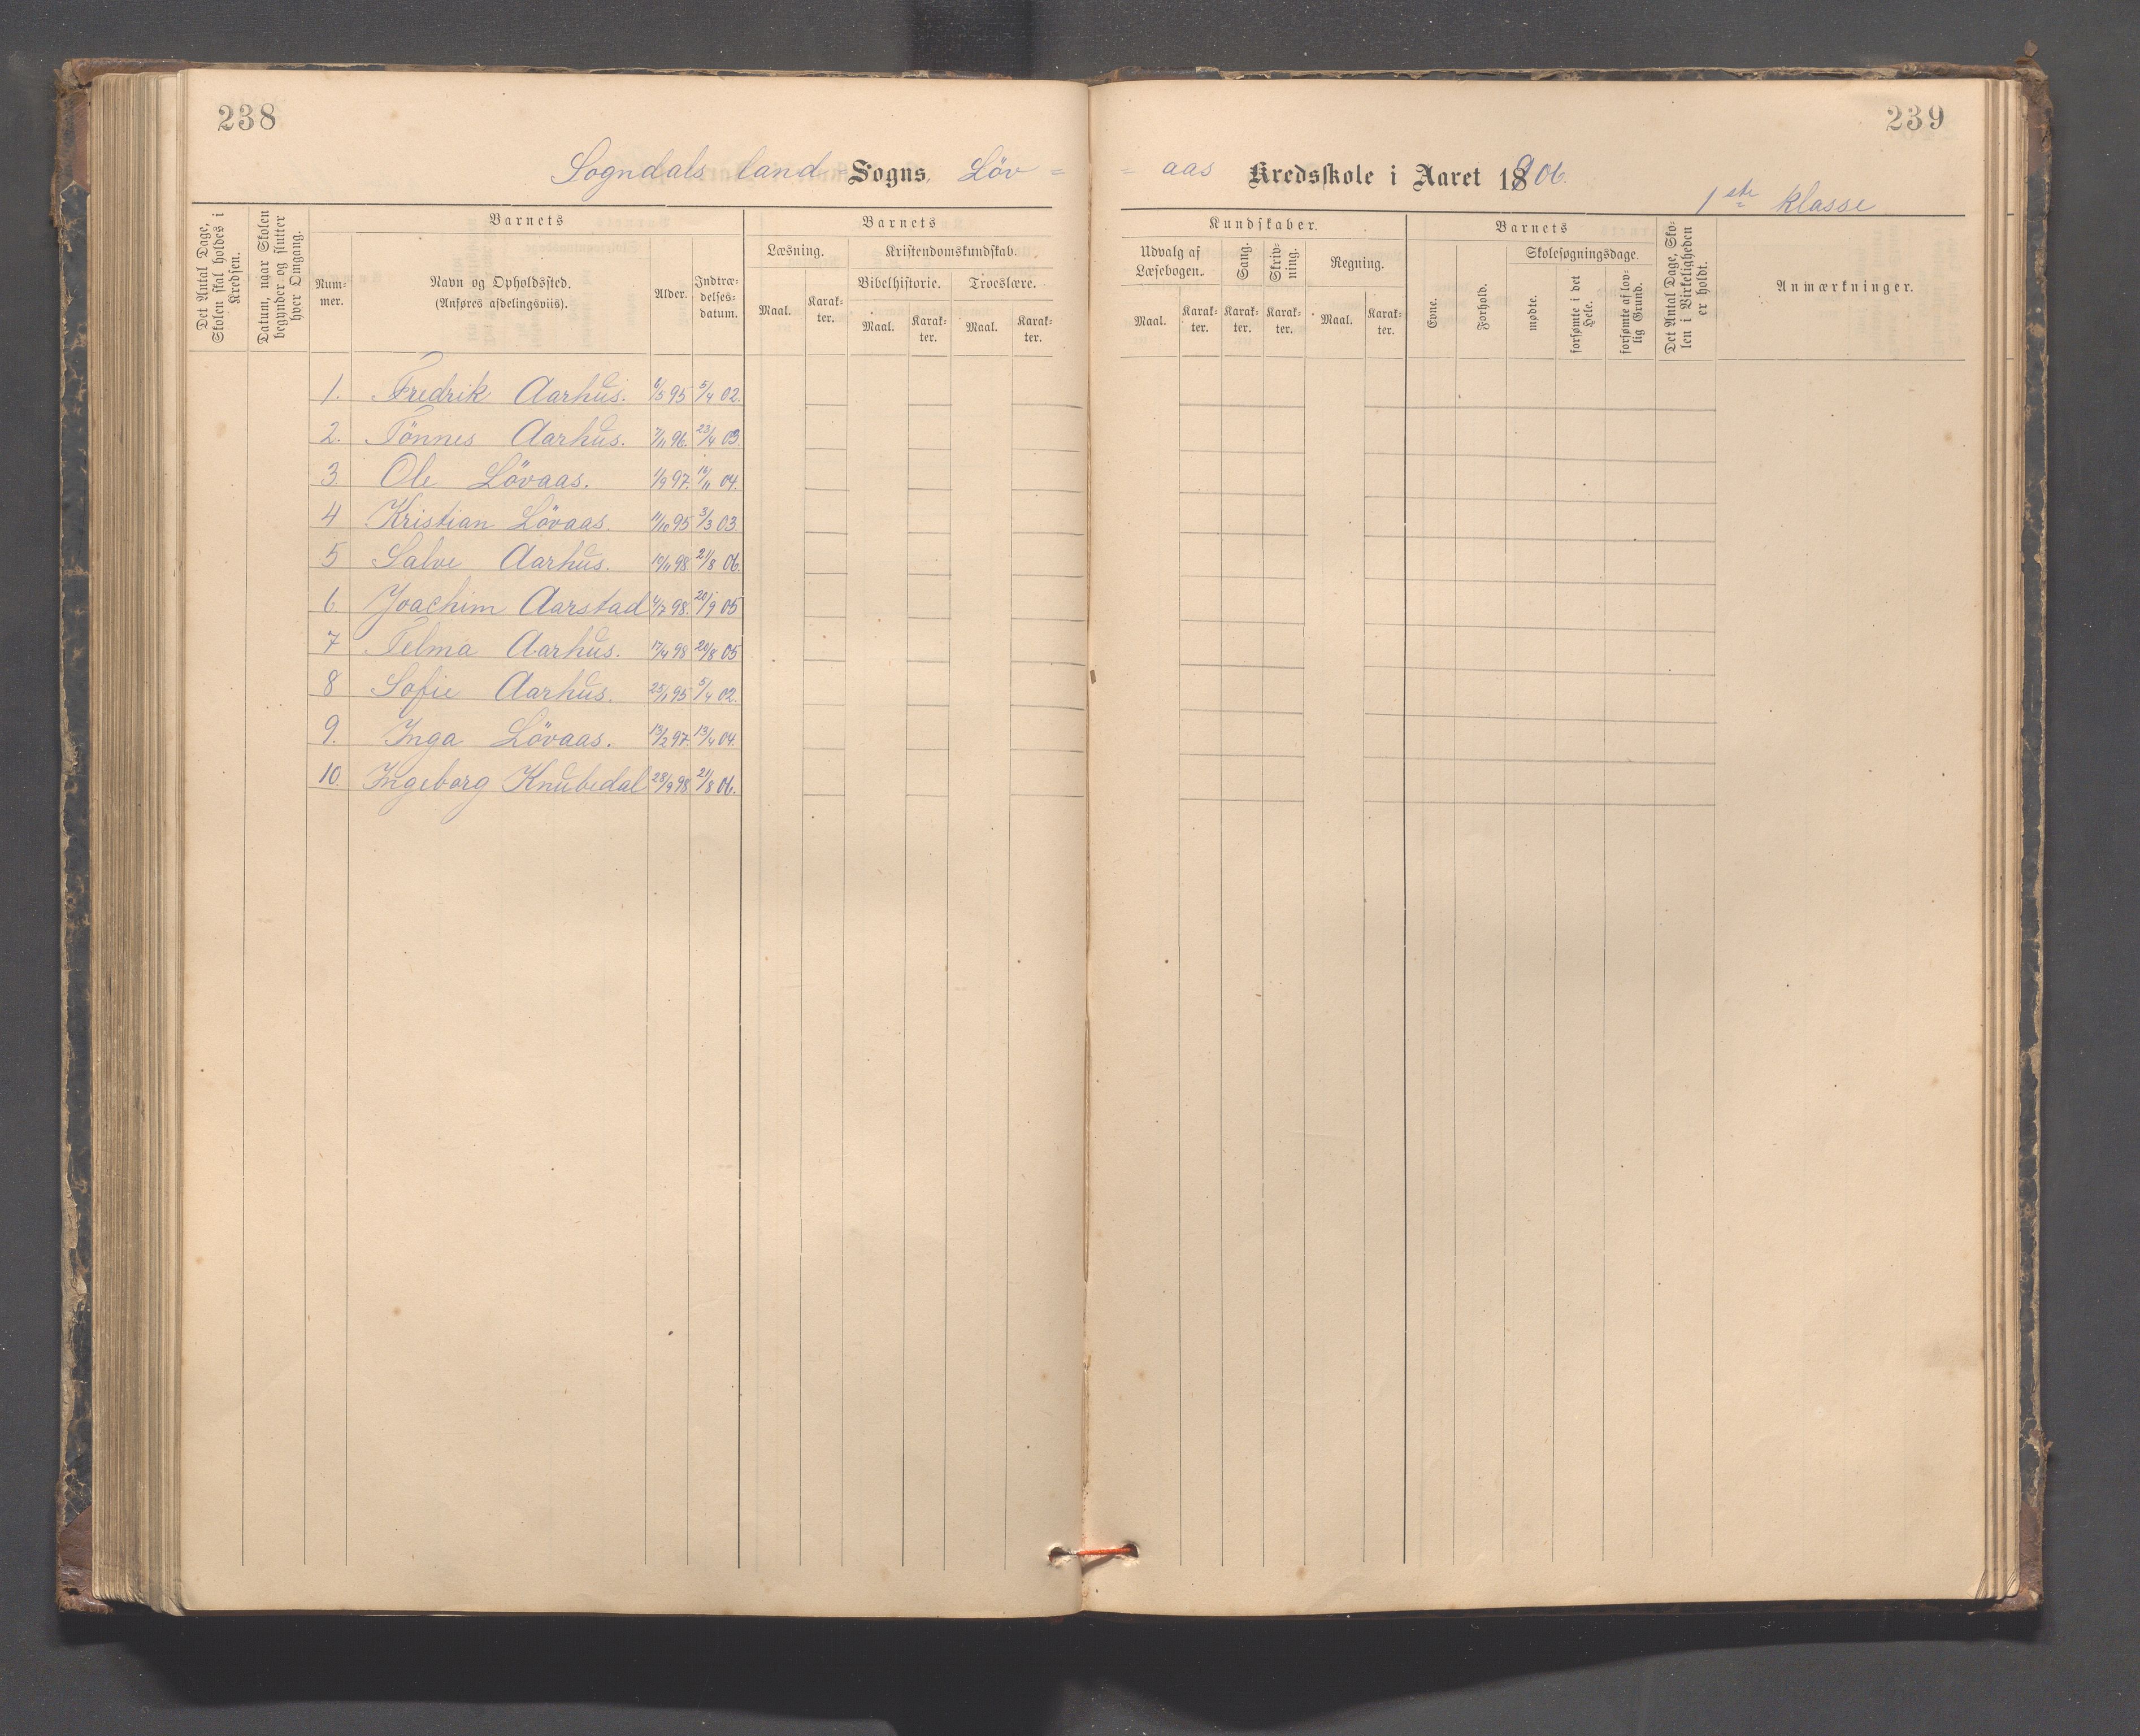 238
239
Sogndals land Sogns, Löv =
= aas Kredsskole i Aaret 1906.
1ste klasse
Det Antal Dage, Skolen skal holdes i Kredsen.
Datum, naar Skolen begynder og slutter hver Omgang.
Barnets
Num-
mer.
Navn og Opholdssted.
(Anføres afdelingsviis).
Alder.
Indtræ-
delses-
datum.
Barnets
Læsning.
Maal.
Karak-
ter.
Kristendomskundskab.
Bibelhistorie.
Maal.
Karak-
ter.
Troeslære.
Maal.
Karak-
ter.
Kundskaber.
Udvalg af
Læsebogen.
Maal.
Karak-
ter.
Sang.
Karak-
ter.
Skriv-
ning.
Karak-
ter.
Regning.
Maal.
Karak-
ter.
Barnets
Evne.
Forhold.
Skolesøgningsdage.
mødte.
forsømte i det
Hele.
forsømte af lov-
lig Grund.
Det Antal Dage, Sko-
len i Virkeligheden
er holdt.
Anmærkninger.
1. Fredrik Aarhus. 6/5 95 5/4 02.
2. Tönnes Aarhus. 7/11 96. 23/4 03.
3. Ole Lövaas. 1/9 97. 04.
4 Kristian Lövaas. 11/10 95 3/3 03.
5 Salve Aarhus. 98 21/8 06.
6. Joachim Aarstad 98. 20/9 05
7 Telma Aarhus. 17/4 98 20/8 05
8 Sofie Aarhus. 25/1 95 5/4 02.
9. Inga Lövaas. 13/2 97. 13/4 04.
10. Ingeborg Knubedal 28/9 98 21/8 06.